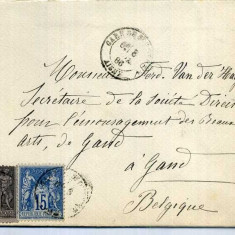 GARE DE
Monsieur Ferd. Van der Hae
Secrétaire de la Société Direc
pour l'encouragement des Beaux
Arts, de Gand
à Gand
Belgique
15